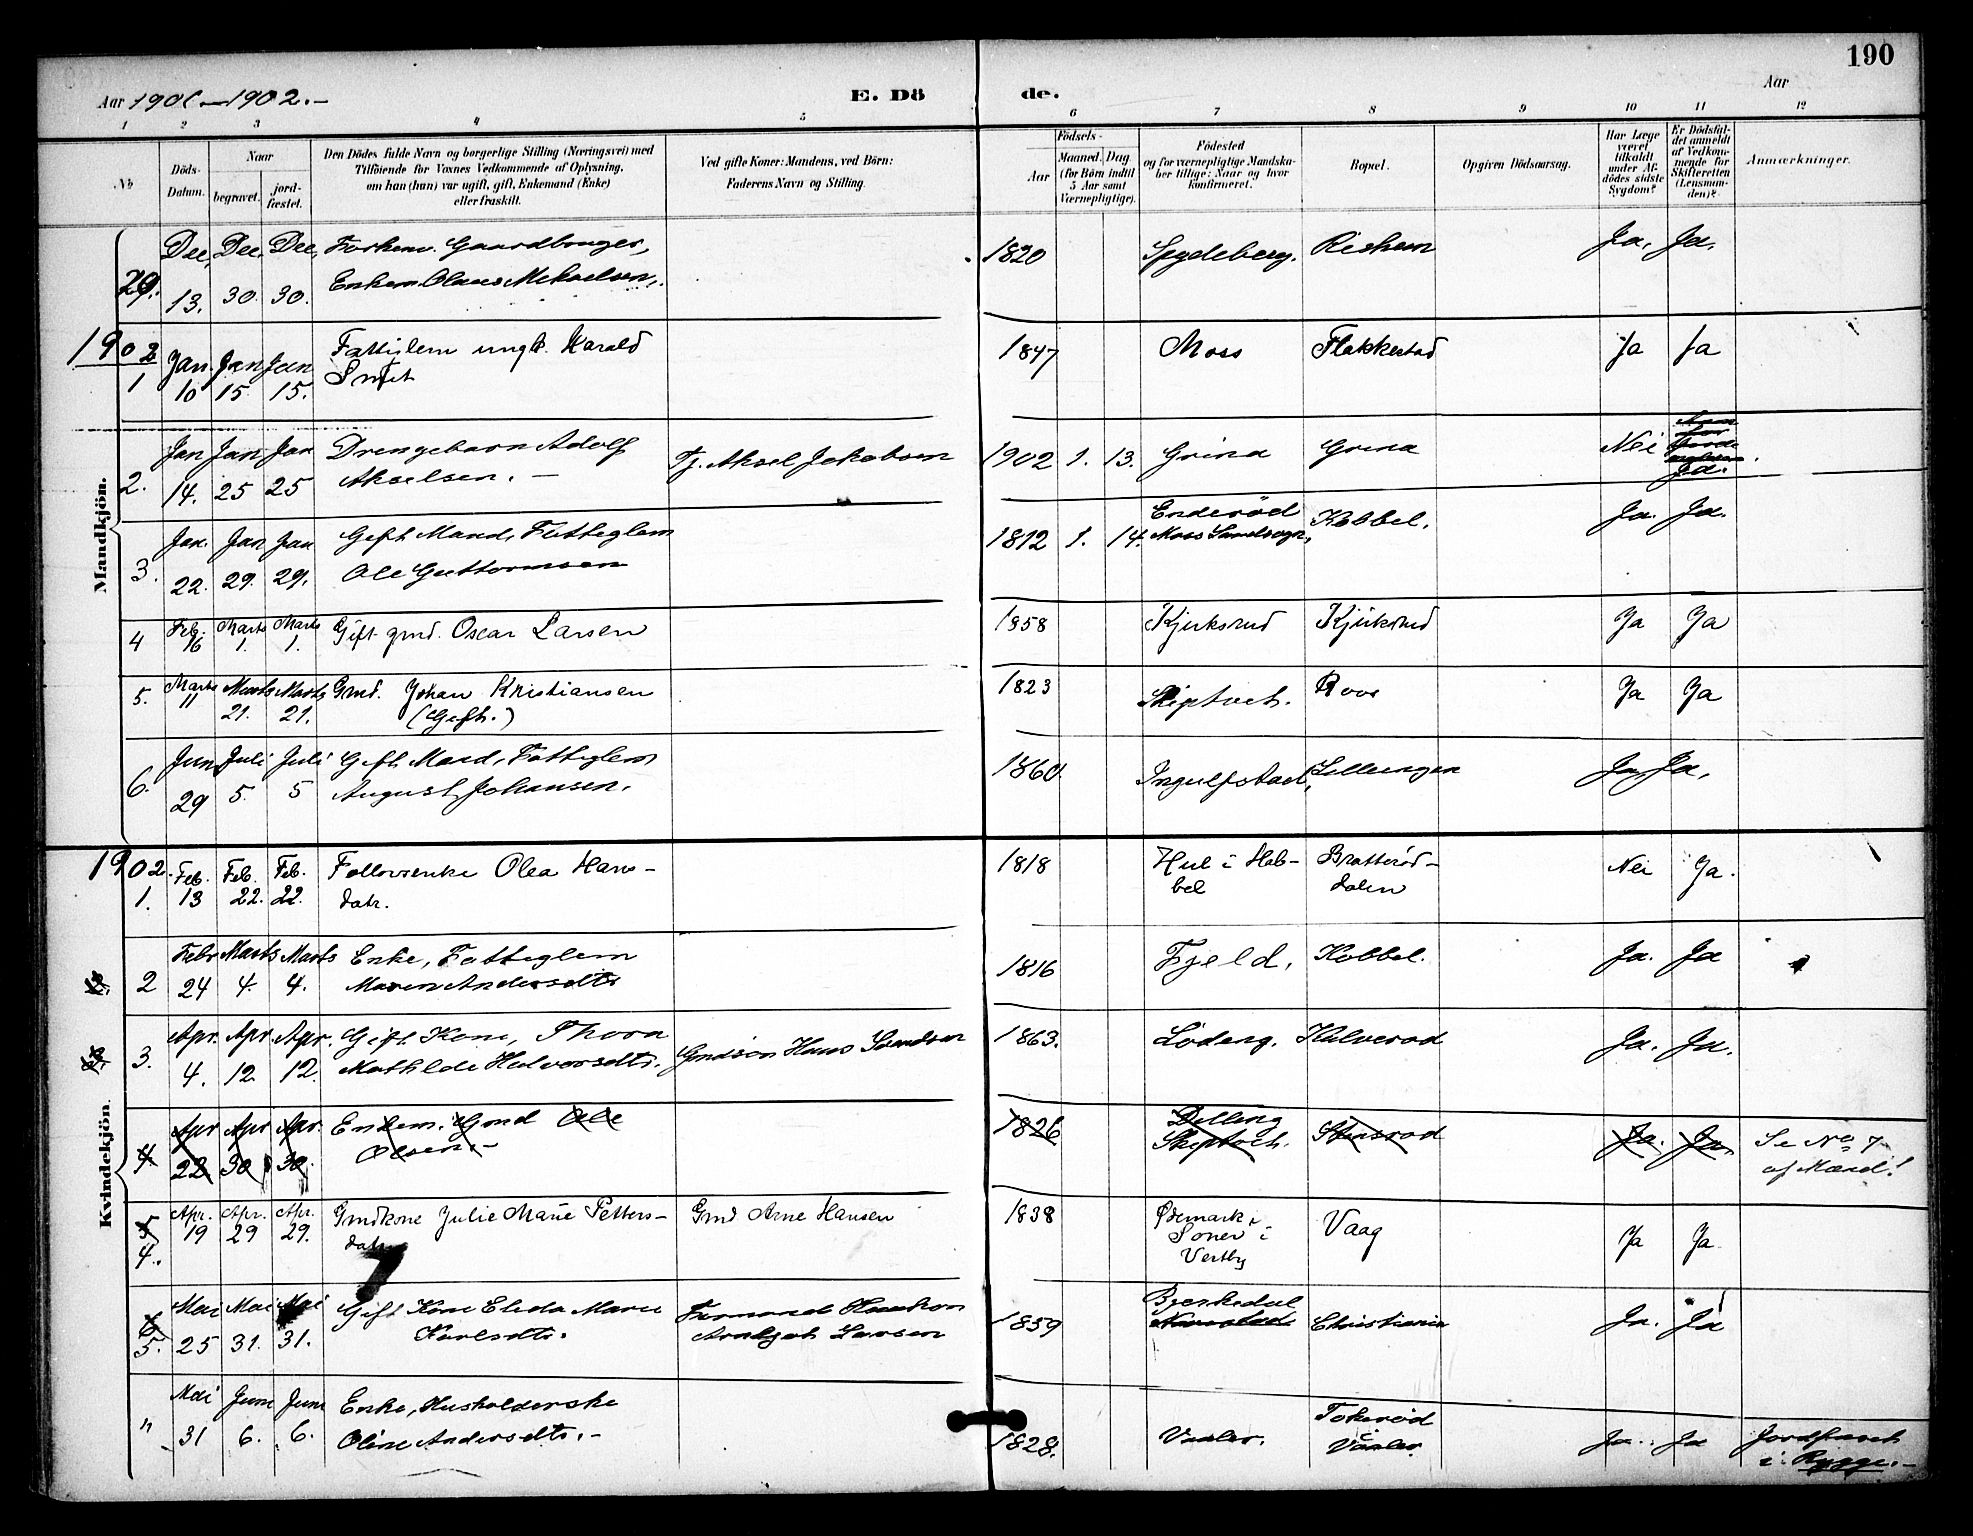 190
Aar 1901 — 1902. –
E. Dö
de.
Aar
1 2 3 4 5 6 7 8 9 10 11 12
No
Döds-
Datum.
Naar
begravet.
jord-
fæstet.
Den Dödes fulde Navn og borgerlige Stilling (Næringsvei) med
Tilföiende for Voxnes Vedkommende af Oplysning,
om han (hun) var ugift, gift, Enkemand (Enke)
eller fraskilt.
Ved gifte Koner: Mandens, ved Börn:
Faderens Navn og Stilling.
Födsels-
Aar
Maaned. Dag.
(for Börn indtil
5 Aar samt
Værnepligtige).
Födested
og for værnepligtige Mandska-
ber tillige: Naar og hvor
konfirmeret.
Bopæl.
Opgiven Dödsaarsag.
Har Læge
været
tilkaldt
under Af-
dödes sidste
Sygdom?
Er Dödsfal-
det anmeldt
af Vedkom-
mende for
Skifteretten
(Lensman-
den)?
Anmærkninger.
Mandkjön.
29. Dec. 13. Dec. 30. Dec. 30. Forhenv. Gaardbruger,
Enkem. Olaus Mikaelsen.
1820 Spydeberg. Risheim Ja, Ja.
1902
1 Jan 10 Jan 15 Jan 15. Fattiglem ungk. Harald
Smit
1847 Moss Flakkestad Ja Ja
2. Jan 14. Jan 25 Jan 25 Drengebarn Adolf
Akselsen. – Tj. Aksel Jakobsen 1902 1. 13. Grina Grina Nei
Ja.
3. Jan. 22. Jan 29. Jan 29. Gift Mand, Fattiglem
Ole Guttormsen
1812 1. 14. Enderød
Moss Landsogn, Kobbel. Ja. Ja.
4 Feb. 16 Marts 1. Marts 1. Gift gmd. Oscar Larsen 1858 Kjuksrud Kjuksrud Ja Ja
5. Marts 11 Marts 21. Marts 21. Gmd. Johan Kristiansen
(Gift.)
1823 Skiptvet. Roos Ja Ja
6. Jun 29 Juli 5. Juli 5 Gift Mand, Fattiglem
August Johansen.
1860 Ingulfstad, Ja, Ja,
Kvindekjön.
1902.
1. Feb. 13 Feb. 22. Feb. 22. Follovsenke Olea Hans-
datr.
1818 Hul i Hob-
bel Bratterød-
dalen Nei Ja.
2 Febr 24 Marts 4. Marts 4. Enke, Fattiglem
Maren Andersdtr
1816 Fjeld, Kobbel. Ja. Ja
3. Apr. 4. Apr. 12 Apr. 12. Gift Kone, Thora
Mathilde Halvorsdtr. Gmdson Hans Svendsen 1863. Lödeng. Halverød Ja. Ja.
4 Apr 22 Apr 30 Apr. 30. Enkem. Gmd Ole
Olsen. –
1826 Delling
Skiptvet. Stensrød Ja. Ja. Se No 7
af Mænd!
5
4. Apr. 19 Apr. 29 Apr. 29. Gmdkone Julie Marie Petters-
datr Gmd Arne Hansen 1838 Ødemark i
Soner i
Vestby Vaag Ja Ja.
6
5. Mai 25 Mai 31. Mai 31. Gift Kone Elida Marie
Karlsdtr. Larsen
1859 Bjerkedal
Christiania Ja. Ja
" Mai 31 Juni 6. Juni 6. Enke, Husholderske
Oline Andersdtr. –
1828. Vaaler. Tokerød
i Vaaler Ja. Ja Jordfæstet
i Rygge. –